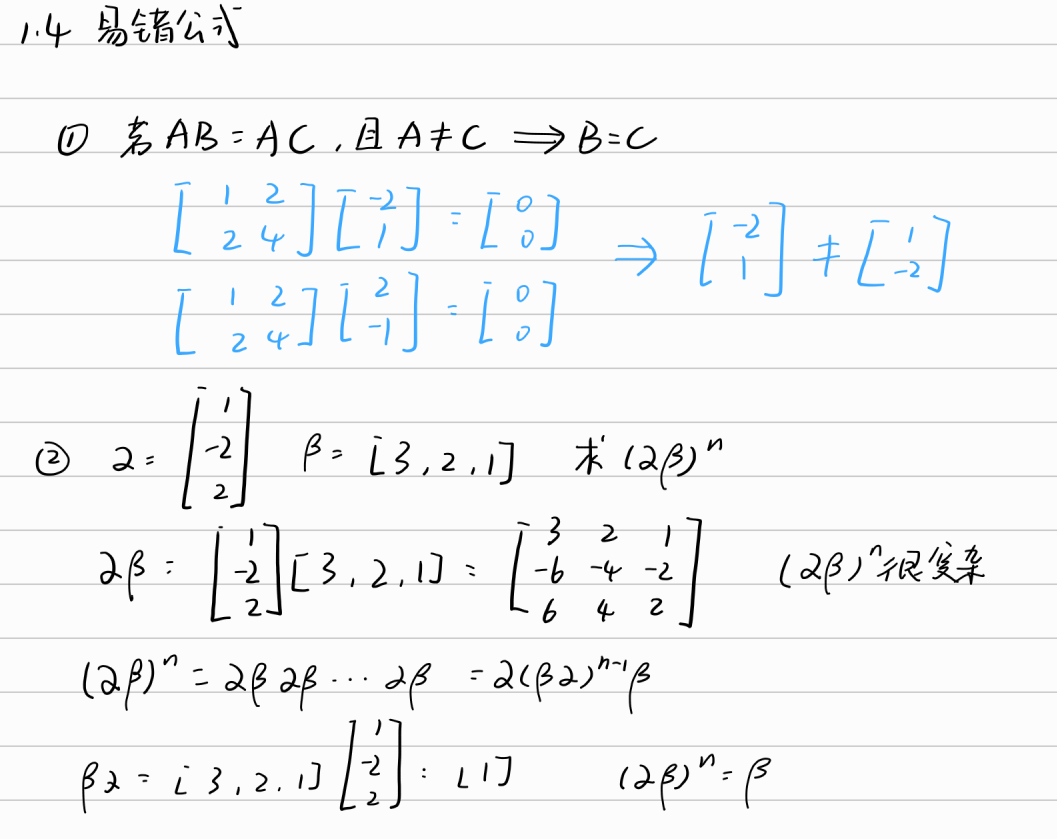 1.4 易错公式
① 若 AB = AC , 且 A ≠ C ⟹ B = C
[1 2; 2 4] [-2; 1] = [0; 0] ⇒ [-2; 1] ≠ [1; -2]
[1 2; 2 4] [2; -1] = [0; 0]
② α = [1; -2; 2] β = [3, 2, 1] 求 (αβ)^n
αβ = [1; -2; 2] [3, 2, 1] = [3 2 1; -6 -4 -2; 6 4 2] (αβ)^n 很复杂
(αβ)^n = αβ αβ ⋯ αβ = α(βα)^{n-1}β
βα = [3, 2, 1] [1; -2; 2] = [1] (αβ)^n = β